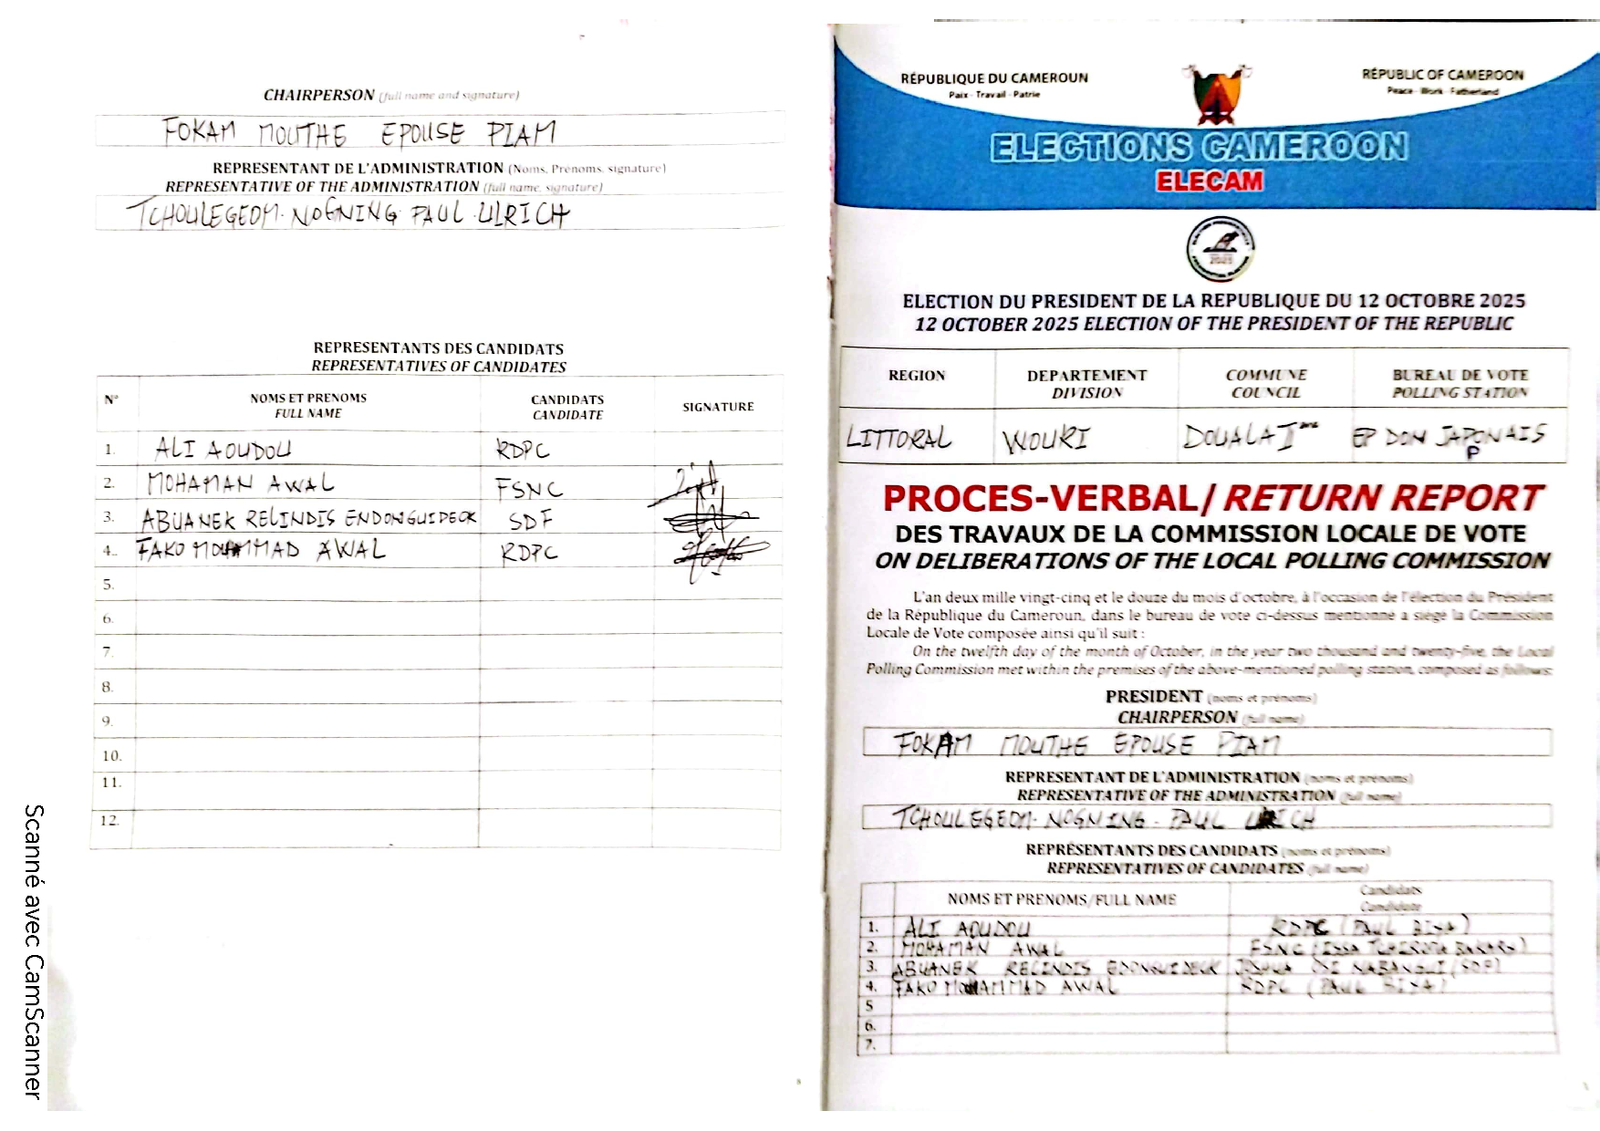 CHAIRPERSON (full name and signature)
FOKAM MOUTHE EPOUSE PIAM
REPRESENTANT DE L'ADMINISTRATION (Noms, Prénoms, signature)
REPRESENTATIVE OF THE ADMINISTRATION (full name, signature)
TCHOULEGEOM. NOGNING. PAUL. ULRICH
REPRESENTANTS DES CANDIDATS
REPRESENTATIVES OF CANDIDATES
N° NOMS ET PRENOMS FULL NAME CANDIDATS CANDIDATE SIGNATURE
1. ALI AOUDOU RDPC
2. MOHAMAN AWAL FSNC
3. ABUANEK RELINDIS ENDONGUIDECK SDF
4. FAKO MOHAMMAD AWAL RDPC
5.
6.
7.
8.
9.
10.
11.
12.
Scanné avec CamScanner
RÉPUBLIQUE DU CAMEROUN
Paix - Travail - Patrie
RÉPUBLIC OF CAMEROON
Peace - Work - Fatherland
ELECTIONS CAMEROON
ELECAM
2025
ELECTION DU PRESIDENT DE LA REPUBLIQUE DU 12 OCTOBRE 2025
12 OCTOBER 2025 ELECTION OF THE PRESIDENT OF THE REPUBLIC
REGION DEPARTEMENT DIVISION COMMUNE COUNCIL BUREAU DE VOTE POLLING STATION
LITTORAL WOURI DOUALA I EP DON JAPONAIS
P
PROCES-VERBAL/ RETURN REPORT
DES TRAVAUX DE LA COMMISSION LOCALE DE VOTE
ON DELIBERATIONS OF THE LOCAL POLLING COMMISSION
L'an deux mille vingt-cinq et le douze du mois d'octobre, à l'occasion de l'élection du Président
de la République du Cameroun, dans le bureau de vote ci-dessus mentionné a siégé la Commission
Locale de Vote composée ainsi qu'il suit :
On the twelfth day of the month of October, in the year two thousand and twenty-five, the Local
Polling Commission met within the premises of the above-mentioned polling station, composed as follows:
PRESIDENT (noms et prénoms)
CHAIRPERSON (full name)
FOKAM MOUTHE EPOUSE PIAM
REPRESENTANT DE L'ADMINISTRATION (noms et prénoms)
REPRESENTATIVE OF THE ADMINISTRATION (full name)
TCHOULEGEOM. NOGNING. PAUL ULRICH
REPRÉSENTANTS DES CANDIDATS (noms et prénoms)
REPRESENTATIVES OF CANDIDATES (full name)
NOMS ET PRENOMS/FULL NAME Candidats Candidate
1. ALI AOUDOU RDPC (PAUL BIYA)
2. MOHAMAN AWAL FSNC (ISSA TCHIROMA BAKARY)
3. ABUANEK RELINDIS EDONGUIDECK JOSHUA OSI NABANGUI (SDF)
4. FAKO MOHAMMAD AWAL RDPC (PAUL BIYA)
5
6.
7.